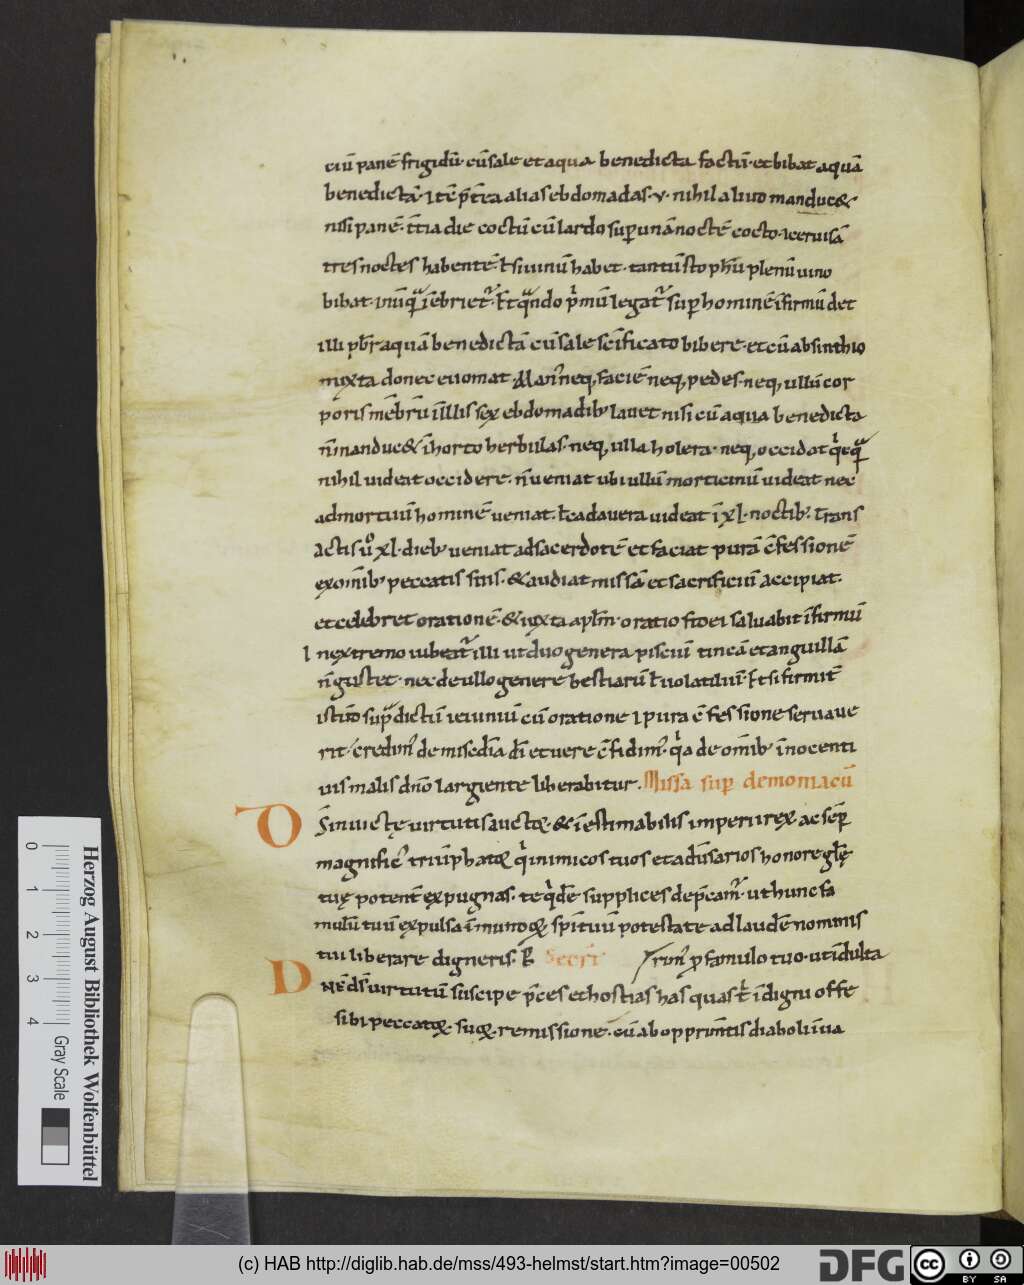 ciū panē frigidū· cū sale et aqua benedicta factū· et bibat aquā
benedictā· Itē p̄t̄ea alias ebdomadas· v· nihil aliud manduc&
nisi panē· t̄tia die coctū cū lardo sup̄ unā noctē cocto· & ceruisā
tres noctes habentē· ł si uinū habet· tantū sto plenū uino
bibat· inūquā inebriet᷑· Et quando p̄mū legat᷑ sup̄ hominē ī firmū det
illi pb̄r aquā benedictā cū sale sc̄ificato bibere· et cū absinthio
mixta donec euomat· Man᷒ neq; faciē neq; pedes· neq; ullū cor
poris mēbrū ī illis sex ebdomadib᷒ lauet nisi cū aqua benedicta
n̄ manduc& ī horto herbulas· neq; ulla holera· neq; occidat
nihil uideat occidere· n̄ ueniat ubi ullū morticinū uideat nec
ad mortuū hominē ueniat· ł cadauera uideat ī xl· noctib᷒· Trans
actis ů xl· dieb᷒ ueniat ad sacerdotē et faciat purā c̄fessionē
ex om̄ib᷒ peccatis suis· & audiat missā et sacrificiū accipiat·
et celebret orationē· & iuxta apl̄m· oratio fidei saluabit īfirmū
In extremo iubeat᷑ illi ut duo genera pisciū tincā et anguillā
n̄ gustet· nec de ullo genere bestiarū ł uolatiliū· Et si firmit̄
istud sup̄dictū ieiuniū cū oratione & pura c̄fessione seruaue
rit· credim᷒ de mis̄edia dī et uere c̄fidim᷒· q̇a de om̄ib᷒ īnocenti
uis malis dn̄o largiente liberabitur· Missa sup̄ demoniacū
D S̄ inuictę uirtutis auctoꝝ· & īestimabilis imperii rex ac sēp̄
magnific᷒ triūphatoꝝ q̇ inimicos tuos et aduersarios honore gl̄ę
tuę potent̄ expugnas· te q̇d̄e supplices dep̄cam᷒· ut hunc fa
mulū tuū expulsa īmundoꝝ sp̄ituū potestate ad laudē nominis
tui liberare digneris· P̄ Secr̄ ꝓ famulo tuo· ut īdulta
D NĒ DS̄ uirtutū suscipe p̄ces et hostias has quas t̄ īdigni offe
sibi peccatoꝝ· suoꝝ· remissione· cū ab opprim̄tis diaboli īua
Herzog August Bibliothek Wolfenbüttel
0 1 2 3 4 Gray Scale
(c) HAB http://diglib.hab.de/mss/493-helmst/start.htm?image=00502
DFG cc BY SA